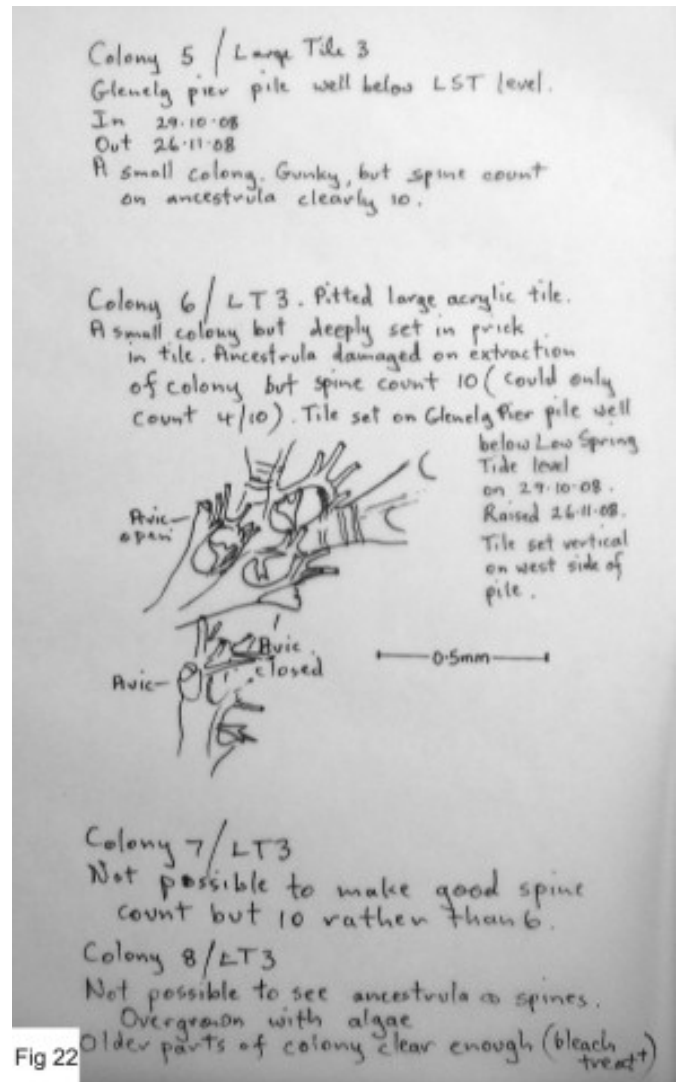 Colony 5 / Large Tile 3
Glenelg pier pile well below LST level.
In 29.10.08
Out 26.11.08
A small colony. Gunky, but spine count
on ancestrula clearly 10.
Colony 6 / LT3. Pitted large acrylic tile.
A small colony but deeply set in prick
in tile. Ancestrula damaged on extraction
of colony but spine count 10 (Could only
count 4/10). Tile set on Glenelg Pier pile well
below Low Spring
Tide level
on 29.10.08.
Raised 26.11.08.
Tile set vertical
on west side of
pile.
Avic
open
Avic
closed
Avic
0.5mm
Colony 7/LT3
Not possible to make good spine
count but 10 rather than 6.
Colony 8/LT3
Not possible to see ancestrula spines.
Overgrown with algae
Older parts of colony clear enough (bleach
treatt)
Fig 22